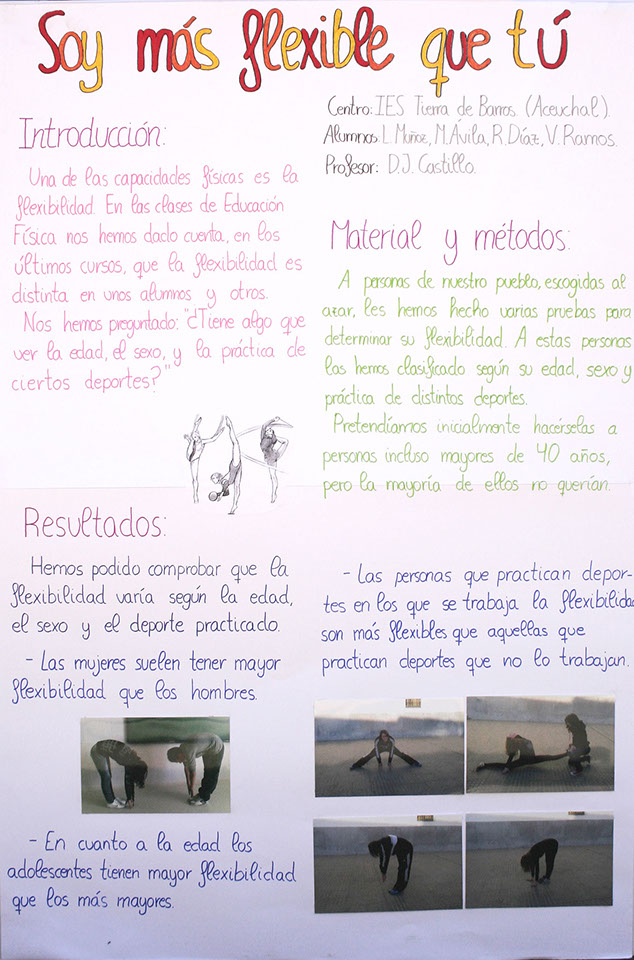 Soy más flexible que tú
Centro: IES Tierra de Barros. (Aceuchal).
Alumnos: L. Muñoz, M. Ávila, R. Díaz, V. Ramos.
Profesor: D.J. Castillo.
Introducción:
Una de las capacidades físicas es la
flexibilidad. En las clases de Educación
Física nos hemos dado cuenta, en los
últimos cursos, que la flexibilidad es
distinta en unos alumnos y otros.
Nos hemos preguntado: "¿Tiene algo que
ver la edad, el sexo, y la práctica de
ciertos deportes?"
Material y métodos:
A personas de nuestro pueblo, escogidas al
azar, les hemos hecho varias pruebas para
determinar su flexibilidad. A estas personas
las hemos clasificado según su edad, sexo y
práctica de distintos deportes.
Pretendíamos inicialmente hacérselas a
personas incluso mayores de 40 años,
pero la mayoría de ellos no querían.
Resultados:
Hemos podido comprobar que la
flexibilidad varía según la edad,
el sexo y el deporte practicado.
- Las mujeres suelen tener mayor
flexibilidad que los hombres.
- En cuanto a la edad los
adolescentes tienen mayor flexibilidad
que los más mayores.
- Las personas que practican depor-
tes en los que se trabaja la flexibilidad
son más flexibles que aquellas que
practican deportes que no lo trabajan.